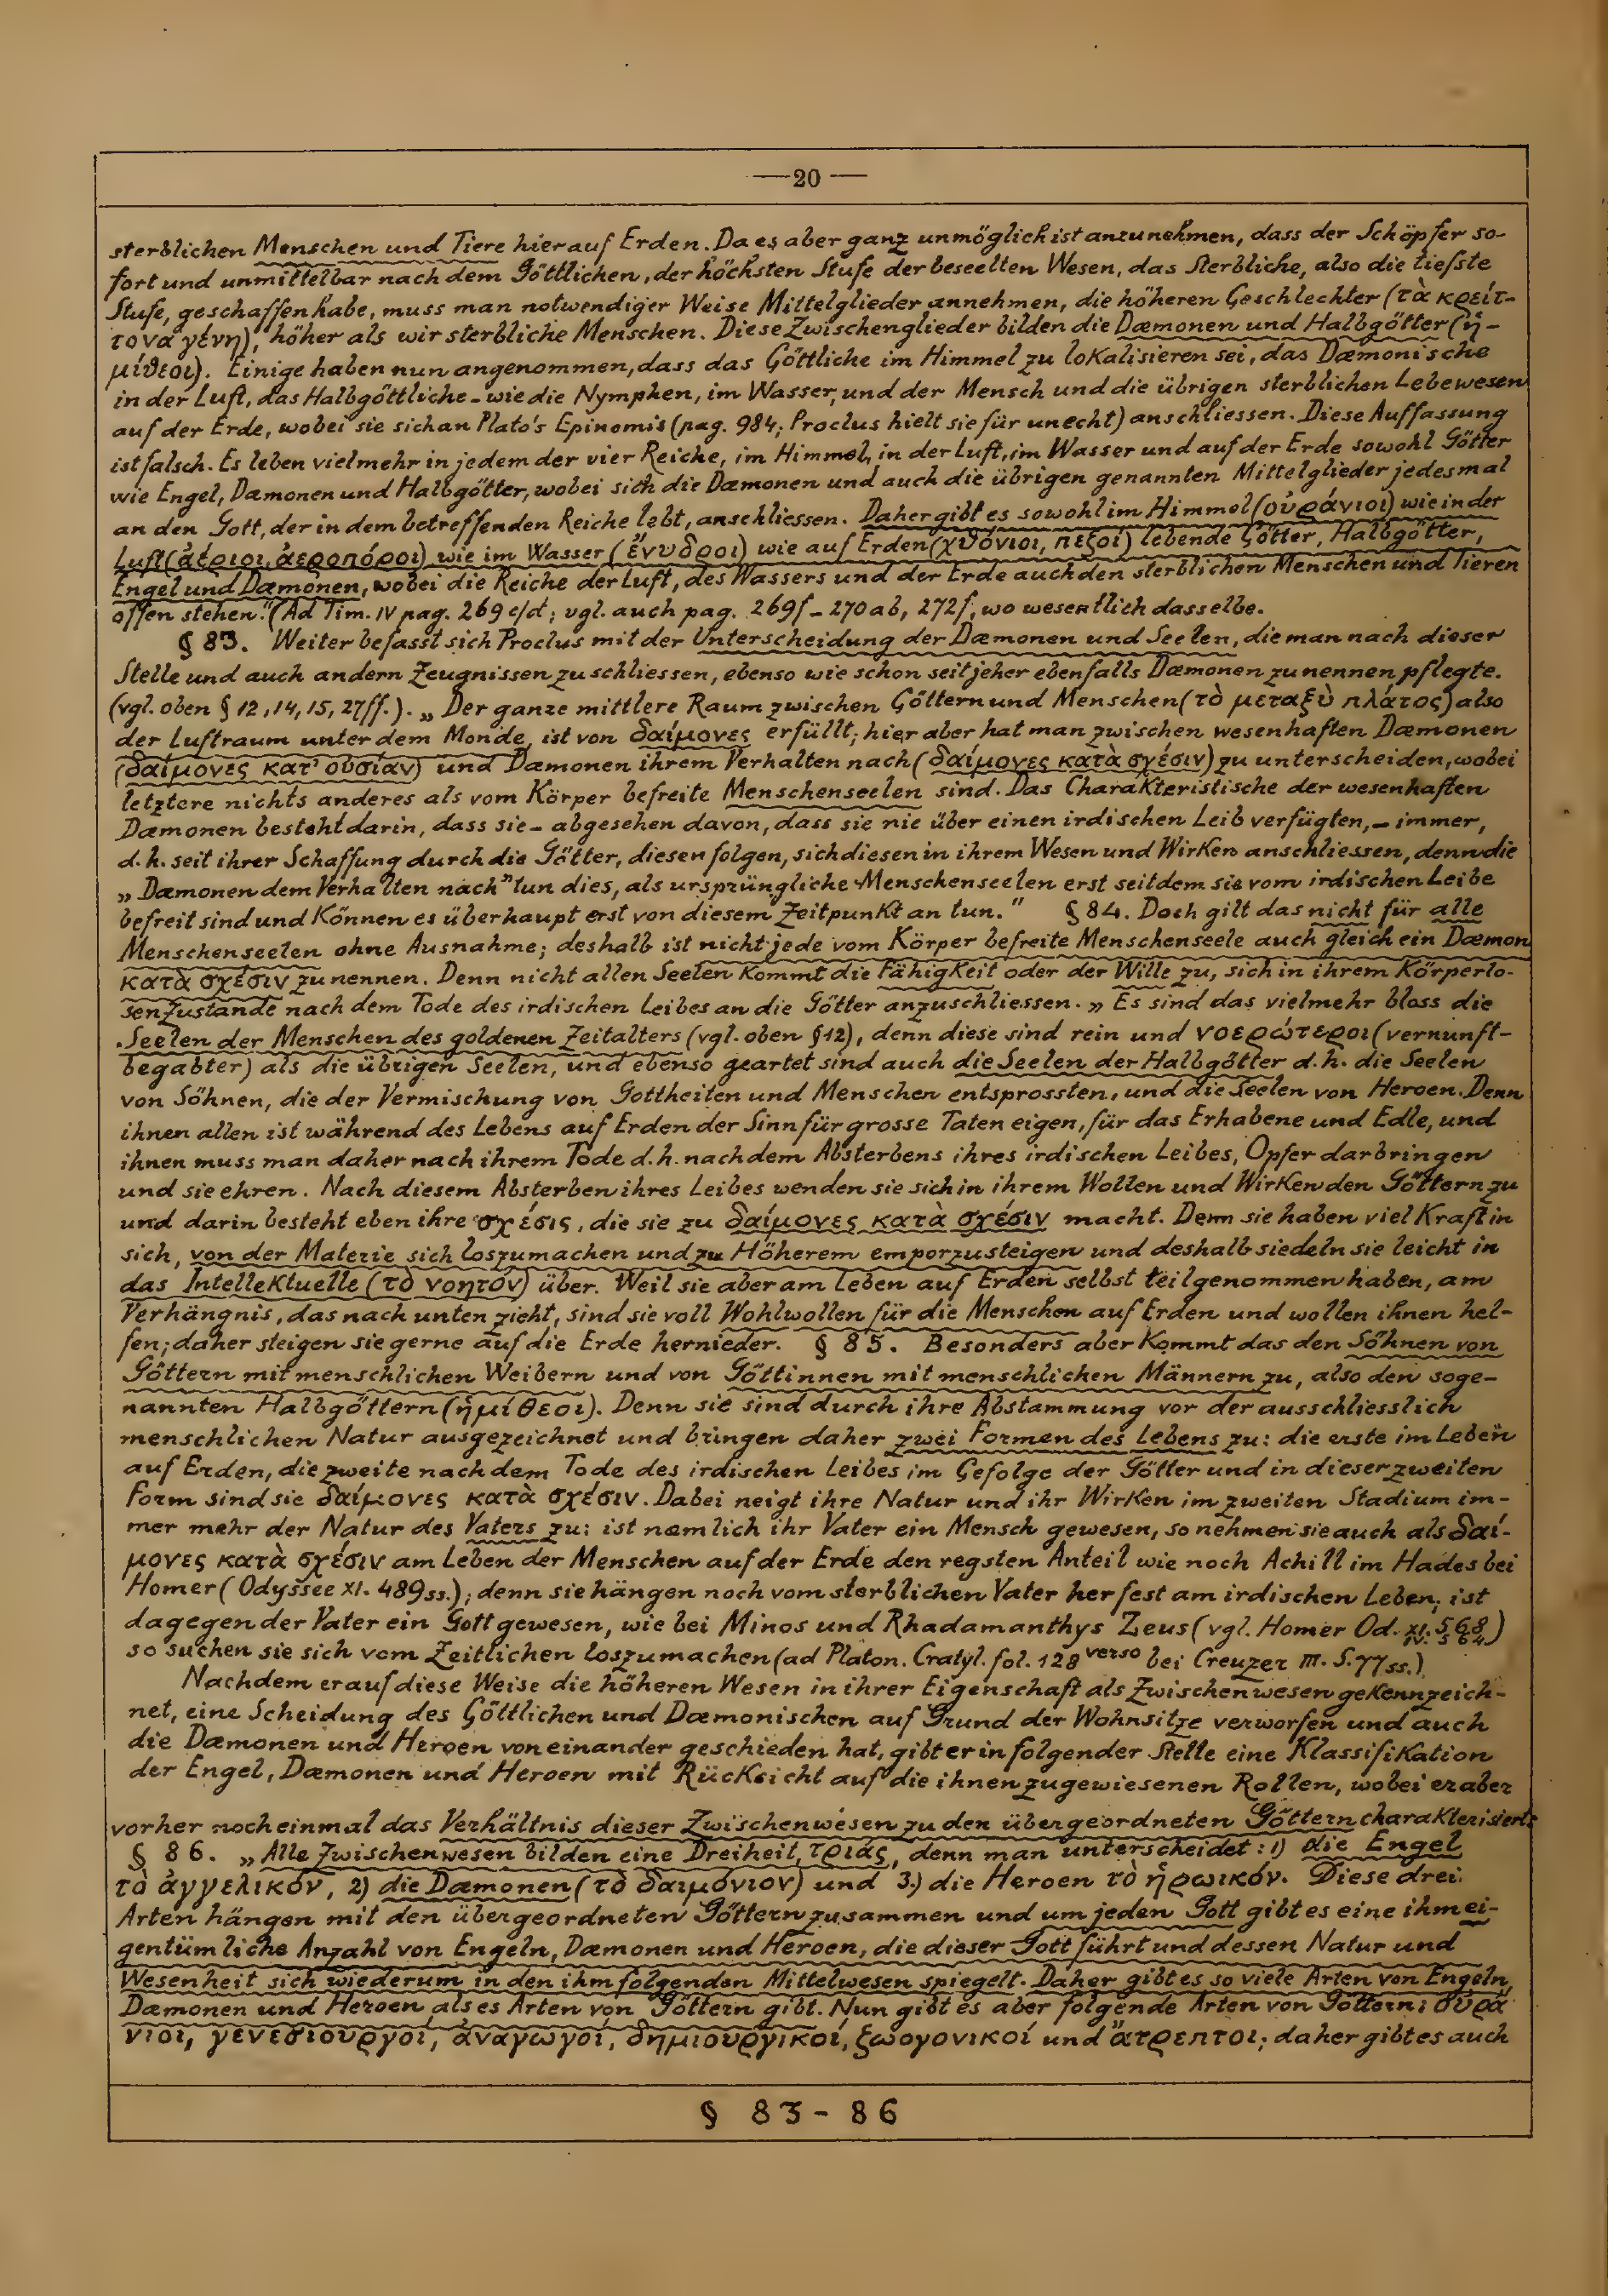 —20—
sterblichen Menschen und Tiere hier auf Erden. Da es aber ganz unmöglich ist anzunehmen, dass der Schöpfer so-
fort und unmittelbar nach dem Göttlichen, der höchsten Stufe der beseelten Wesen, das Sterbliche, also die tiefste
Stufe, geschaffen habe, muss man notwendiger Weise Mittelglieder annehmen, die höheren Geschlechter (τὰ κρείτ-
τονα γένη), höher als wir sterbliche Menschen. Diese Zwischenglieder bilden die Dæmonen und Halbgötter (ἡ-
μίθεοι). Einige haben nun angenommen, dass das Göttliche im Himmel zu lokalisieren sei, das Dæmonische
in der Luft, das Halbgöttliche - wie die Nymphen, im Wasser, und der Mensch und die übrigen sterblichen Lebewesen
auf der Erde, wobei sie sich an Plato's Epinomis (pag. 984; Proclus hielt sie für unecht) anschliessen. Diese Auffassung
ist falsch. Es leben vielmehr in jedem der vier Reiche, im Himmel, in der Luft, im Wasser und auf der Erde sowohl Götter
wie Engel, Dæmonen und Halbgötter, wobei sich die Dæmonen und auch die übrigen genannten Mittelglieder jedesmal
an den Gott, der in dem betreffenden Reiche lebt, anschliessen. Daher gibt es sowohl im Himmel (οὐράνιοι) wie in der
Luft (ἀέριοι, ἀεροπόροι) wie im Wasser (ἔνυδροι) wie auf Erden (χθόνιοι, πεζοί) lebende Götter, Halbgötter,
Engel und Dæmonen, wobei die Reiche der Luft, des Wassers und der Erde auch den sterblichen Menschen und Tieren
offen stehen." (Ad Tim. IV pag. 269 c/d; vgl. auch pag. 269f - 270 ab, 272f, wo wesentlich dasselbe.
§ 83. Weiter befasst sich Proclus mit der Unterscheidung der Dæmonen und Seelen, die man nach dieser
Stelle und auch andern Zeugnissen zu schliessen, ebenso wie schon seit jeher ebenfalls Dæmonen zu nennen pflegte.
(vgl. oben § 12, 14, 15, 27ff.). „Der ganze mittlere Raum zwischen Göttern und Menschen (τὸ μεταξὺ πλάτος) also
der Luftraum unter dem Monde, ist von δαίμονες erfüllt; hier aber hat man zwischen wesenhaften Dæmonen
(δαίμονες κατ' οὐσίαν) und Dæmonen ihrem Verhalten nach (δαίμονες κατὰ σχέσιν) zu unterscheiden, wobei
letztere nichts anderes als vom Körper befreite Menschenseelen sind. Das Charakteristische der wesenhaften
Dæmonen besteht darin, dass sie - abgesehen davon, dass sie nie über einen irdischen Leib verfügten, - immer,
d. h. seit ihrer Schaffung durch die Götter, diesen folgen, sich diesen in ihrem Wesen und Wirken anschliessen, denn die
„Dæmonen dem Verhalten nach" tun dies, als ursprüngliche Menschenseelen erst seitdem sie vom irdischen Leibe
befreit sind und können es überhaupt erst von diesem Zeitpunkt an tun." § 84. Doch gilt das nicht für alle
Menschenseelen ohne Ausnahme; deshalb ist nicht jede vom Körper befreite Menschenseele auch gleich ein Dæmon
κατὰ σχέσιν zu nennen. Denn nicht allen Seelen kommt die Fähigkeit oder der Wille zu, sich in ihrem körperlo-
sen Zustande nach dem Tode des irdischen Leibes an die Götter anzuschliessen. „Es sind das vielmehr bloss die
Seelen der Menschen des goldenen Zeitalters (vgl. oben § 12), denn diese sind rein und νοερώτεροι (vernunft-
begabter) als die übrigen Seelen, und ebenso geartet sind auch die Seelen der Halbgötter d. h. die Seelen
von Söhnen, die der Vermischung von Gottheiten und Menschen entsprossten, und die Seelen von Heroen. Denn
ihnen allen ist während des Lebens auf Erden der Sinn für grosse Taten eigen, für das Erhabene und Edle, und
ihnen muss man daher nach ihrem Tode d. h. nach dem Absterbens ihres irdischen Leibes, Opfer darbringen
und sie ehren. Nach diesem Absterben ihres Leibes wenden sie sich in ihrem Wollen und Wirken den Göttern zu
und darin besteht eben ihre σχέσις, die sie zu δαίμονες κατὰ σχέσιν macht. Denn sie haben viel Kraft in
sich, von der Materie sich loszumachen und zu Höherem emporzusteigen und deshalb siedeln sie leicht in
das Intellektuelle (τὸ νοητόν) über. Weil sie aber am Leben auf Erden selbst teilgenommen haben, am
Verhängnis, das nach unten zieht, sind sie voll Wohlwollen für die Menschen auf Erden und wollen ihnen hel-
fen; daher steigen sie gerne auf die Erde hernieder. § 85. Besonders aber kommt das den Söhnen von
Göttern mit menschlichen Weibern und von Göttinnen mit menschlichen Männern zu, also den soge-
nannten Halbgöttern (ἡμίθεοι). Denn sie sind durch ihre Abstammung vor der ausschliesslich
menschlichen Natur ausgezeichnet und bringen daher zwei Formen des Lebens zu: die erste im Leben
auf Erden, die zweite nach dem Tode des irdischen Leibes im Gefolge der Götter und in dieser zweiten
Form sind sie δαίμονες κατὰ σχέσιν. Dabei neigt ihre Natur und ihr Wirken im zweiten Stadium im-
mer mehr der Natur des Vaters zu: ist nämlich ihr Vater ein Mensch gewesen, so nehmen sie auch als δαί-
μονες κατὰ σχέσιν am Leben der Menschen auf der Erde den regsten Anteil wie noch Achill im Hades bei
Homer (Odyssee XI. 489ss.); denn sie hängen noch vom sterblichen Vater her fest am irdischen Leben; ist
dagegen der Vater ein Gott gewesen, wie bei Minos und Rhadamanthys Zeus (vgl. Homer Od. XI. 568 IV. 564)
so suchen sie sich vom Zeitlichen loszumachen (ad Platon. Cratyl. fol. 128 verso bei Creuzer III. S. 77 ss.).
Nachdem er auf diese Weise die höheren Wesen in ihrer Eigenschaft als Zwischenwesen gekennzeich-
net, eine Scheidung des Göttlichen und Dæmonischen auf Grund der Wohnsitze verworfen und auch
die Dæmonen und Heroen von einander geschieden hat, gibt er in folgender Stelle eine Klassifikation
der Engel, Dæmonen und Heroen mit Rücksicht auf die ihnen zugewiesenen Rollen, wobei er aber
vorher noch einmal das Verhältnis dieser Zwischenwesen zu den übergeordneten Göttern charakterisierte
§ 86. „Alle Zwischenwesen bilden eine Dreiheit, τριάς, denn man unterscheidet: 1) die Engel
τὸ ἀγγελικόν, 2) die Dæmonen (τὸ δαιμόνιον) und 3.) die Heroen τὸ ἡρωικόν. Diese drei
Arten hängen mit den übergeordneten Göttern zusammen und um jeden Gott gibt es eine ihm ei-
gentümliche Anzahl von Engeln, Dæmonen und Heroen, die dieser Gott führt und dessen Natur und
Wesenheit sich wiederum in den ihm folgenden Mittelwesen spiegelt. Daher gibt es so viele Arten von Engeln,
Dæmonen und Heroen als es Arten von Göttern gibt. Nun gibt es aber folgende Arten von Göttern: οὐρά
νιοι, γενεσιουργοί, ἀναγωγοί, δημιουργικοί, ζωογονικοί und ἄτρεπτοι; daher gibt es auch
§ 83 - 86